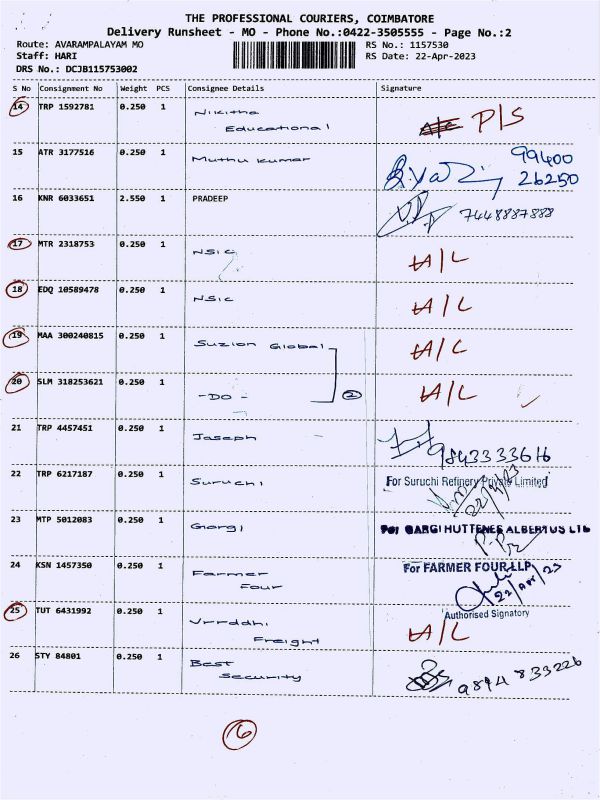 THE PROFESSIONAL COURIERS, COIMBATORE
Delivery Runsheet - MO - Phone No.:0422-3505555 - Page No.:2
Route: AVARAMPALAYAM MO RS No.: 1157530
Staff: HARI RS Date: 22-Apr-2023
DRS No.: DCJB115753002
S No Consignment No Weight PCS Consignee Details Signature
14 TRP 1592781 0.250 1 Nikitha Educational P/S
15 ATR 3177516 0.250 1 Muthu Kumar 99400 26250
16 KNR 6033651 2.550 1 PRADEEP 7448887888
17 MTR 2318753 0.250 1 NSIC A/L
18 EDQ 10589478 0.250 1 NSIC A/L
19 MAA 300240815 0.250 1 Suzlon Global A/L
20 SLM 318253621 0.250 1 -DO- 2 A/L
21 TRP 4457451 0.250 1 Joseph 9843333616
22 TRP 6217187 0.250 1 Suruchi For Suruchi Refinery Private Limited 22/4/23
23 MTP 5012083 0.250 1 Gargi For GARGI HUTTENES ALBERTUS LTD
24 KSN 1457350 0.250 1 Farmer Four For FARMER FOUR LLP 22/Apr/23
Authorised Signatory
25 TUT 6431992 0.250 1 Vrrddhi Freight A/L
26 STY 84801 0.250 1 Best Security 9894833226
6